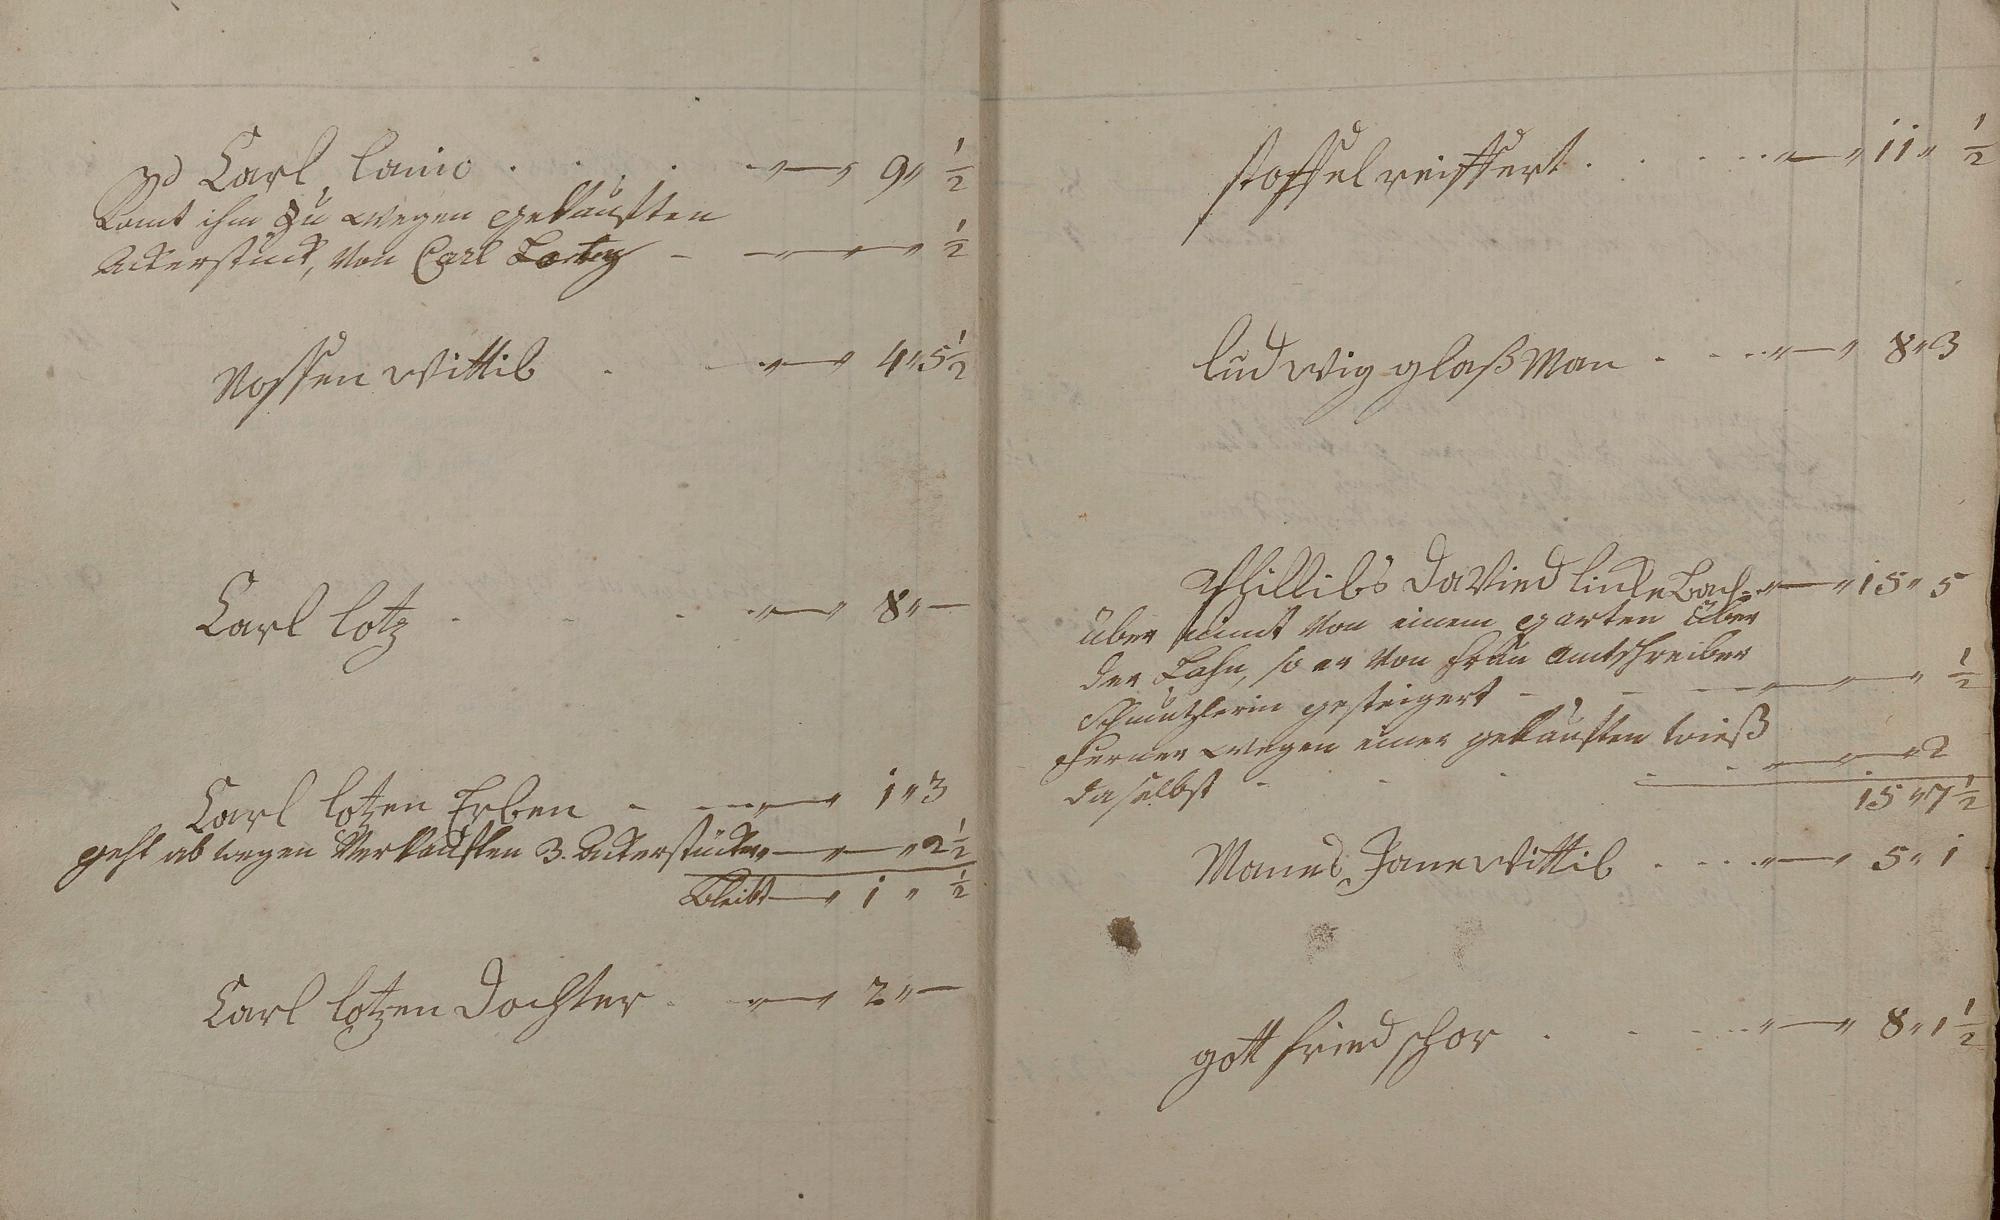 Carl Lanio . . . " — " 9 " 1/2
Komt ihm zu wegen gekauften
Ackerstück, von Carl Lotz — " — " — " 1/2
Nossen Wittib . " — " 4 " 5 1/2
Carl lotz . . " — " 8 " —
Carl lotzen Erben - " — " 1 " 3
geht ab wegen Verkauften 3. Ackerstücke " — " — " 2 1/2
Bleibt — " 1 " 1/2
Carl lotzen Dochter . " — " 2 " —
stoffel reiffert . . . " — " 11 " 1/2
ludwig glaß Man . . " — " 8 " 3
Phillibs David linkeBach " — " 15 " 5
über nimt von einem garten über
der Lahn, so er von Frau Amtschreiber
Schmutzlerin gesteigert - " — " — " 1/2
Ferner wegen einer gekauften wieß
daselbst - " — " — " 2
15 " 7 1/2
Manes Jane Wittib . . " — " 5 " 1
gott fried schor . . . " — " 8 " 1 1/2